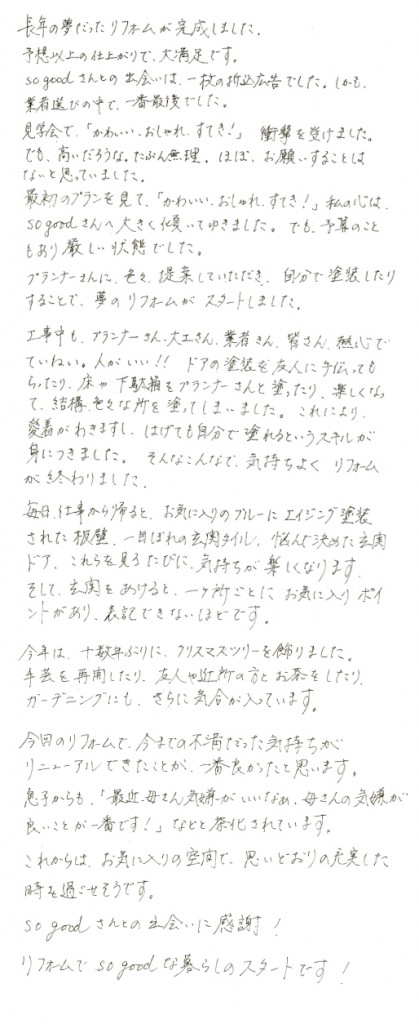 長年の夢だったリフォームが完成しました。
予想以上の仕上がりで、大満足です。
so goodさんとの出会いは、一枚の折込広告でした。しかも、
業者選びの中で、一番最後でした。
見学会で、「かわいい、おしゃれ、すてき!」 衝撃を受けました。
でも、高いだろうな。たぶん無理。ほぼ、お願いすることは
ないと思っていました。
最初のプランを見て、「かわいい、おしゃれ、すてき!」私の心は、
so goodさんへ大きく傾いてゆきました。でも、予算のこと
もあり厳しい状態でした。
プランナーさんに、色々、提案していただき、自分で塗装したり
することで、夢のリフォームがスタートしました。
工事中も、プランナーさん、大工さん、業者さん、皆さん、熱心で
ていねい。人がいい!! ドアの塗装を友人に手伝っても
らったり、床や下駄箱をプランナーさんと塗ったり、楽しくなっ
て、結構、色々な所を塗ってしまいました。これにより、
愛着がわきますし、はげても自分で塗れるというスキルが
身につきました。 そんなこんなで、気持ちよく リフォーム
が終わりました。
毎日、仕事から帰ると、お気に入りのブルーにエイジング塗装
された板壁、一目ぼれの玄関タイル、悩んで決めた玄関
ドア、これらを見るたびに、気持ちが楽しくなります。
そして、玄関をあけると、一ヶ所ごとに お気に入りポイ
ントがあり、表記できないほどです。
今年は、十数年ぶりに、クリスマスツリーを飾りました。
手芸を再開したり、友人や近所の方とお茶をしたり、
ガーデニングにも、さらに気合が入っています。
今回のリフォームで、今までの不満だった気持ちが
リニューアルできたことが、一番良かったと思います。
息子からも、「最近、母さん気嫌がいいなぁ、母さんの気嫌が
良いことが一番です!」などと茶化されています。
これからは、お気に入りの空間で、思いどおりの充実した
時を過ごせそうです。
so goodさんとの出会いに感謝!
リフォームで so goodな暮らしのスタートです!